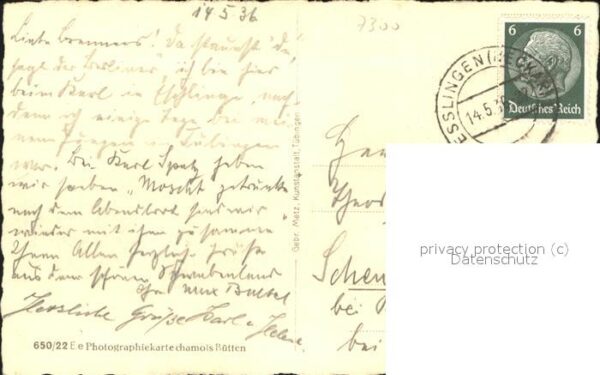 14 5 36
7300
Liebe Brenners! Da staunst Du,
sagt der Berliner, ich bin hier
beim Karl in Esslingen, nach
dem ich einige Tage bei mei
nem Jungen in Tübingen
war. Bei Karl Spatz haben
wir soeben „Moscht" getrunken
nach dem Abendbrot sind wir
wieder mit ihm zusammen
Ihnen Allen herzliche Grüße
aus dem schönen Schwabenland
Ihr Max
Herzliche Grüße Karl u. Helene
650/22 E.e Photographiekarte chamois Bütten
Gebr. Metz, Kunstanstalt, Tübingen
6 6
Deutsches Reich
ESSLINGEN (NECKAR)
14.5.36
Theod
bei
bei
privacy protection (c)
Datenschutz